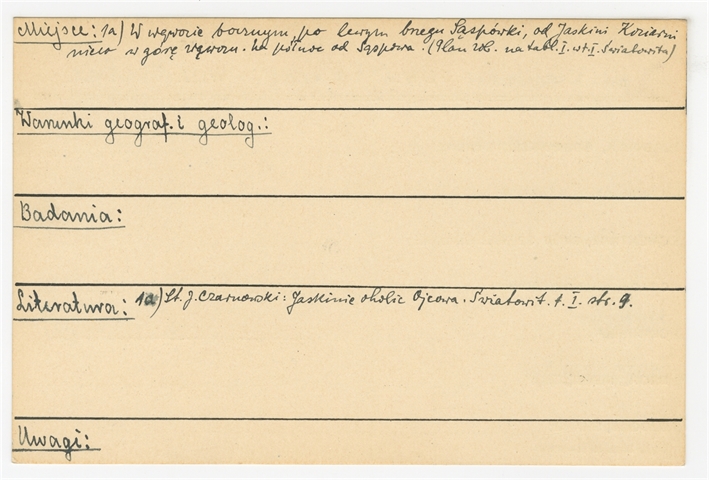 Miejsce: 1a) W wąwozie bocznym, po lewym brzegu Sąspówki, od Jaskini Koziarni
nieco w górę wąwozu. Na północ od Sąspowa. (Plan zob. na tabl. I. w t. I. Światowita)
Warunki geograf. i geolog.:
Badania:
Literatura: 1a) St. J. Czarnowski: Jaskinie okolic Ojcowa. Światowit. t. I. str. 9.
Uwagi: